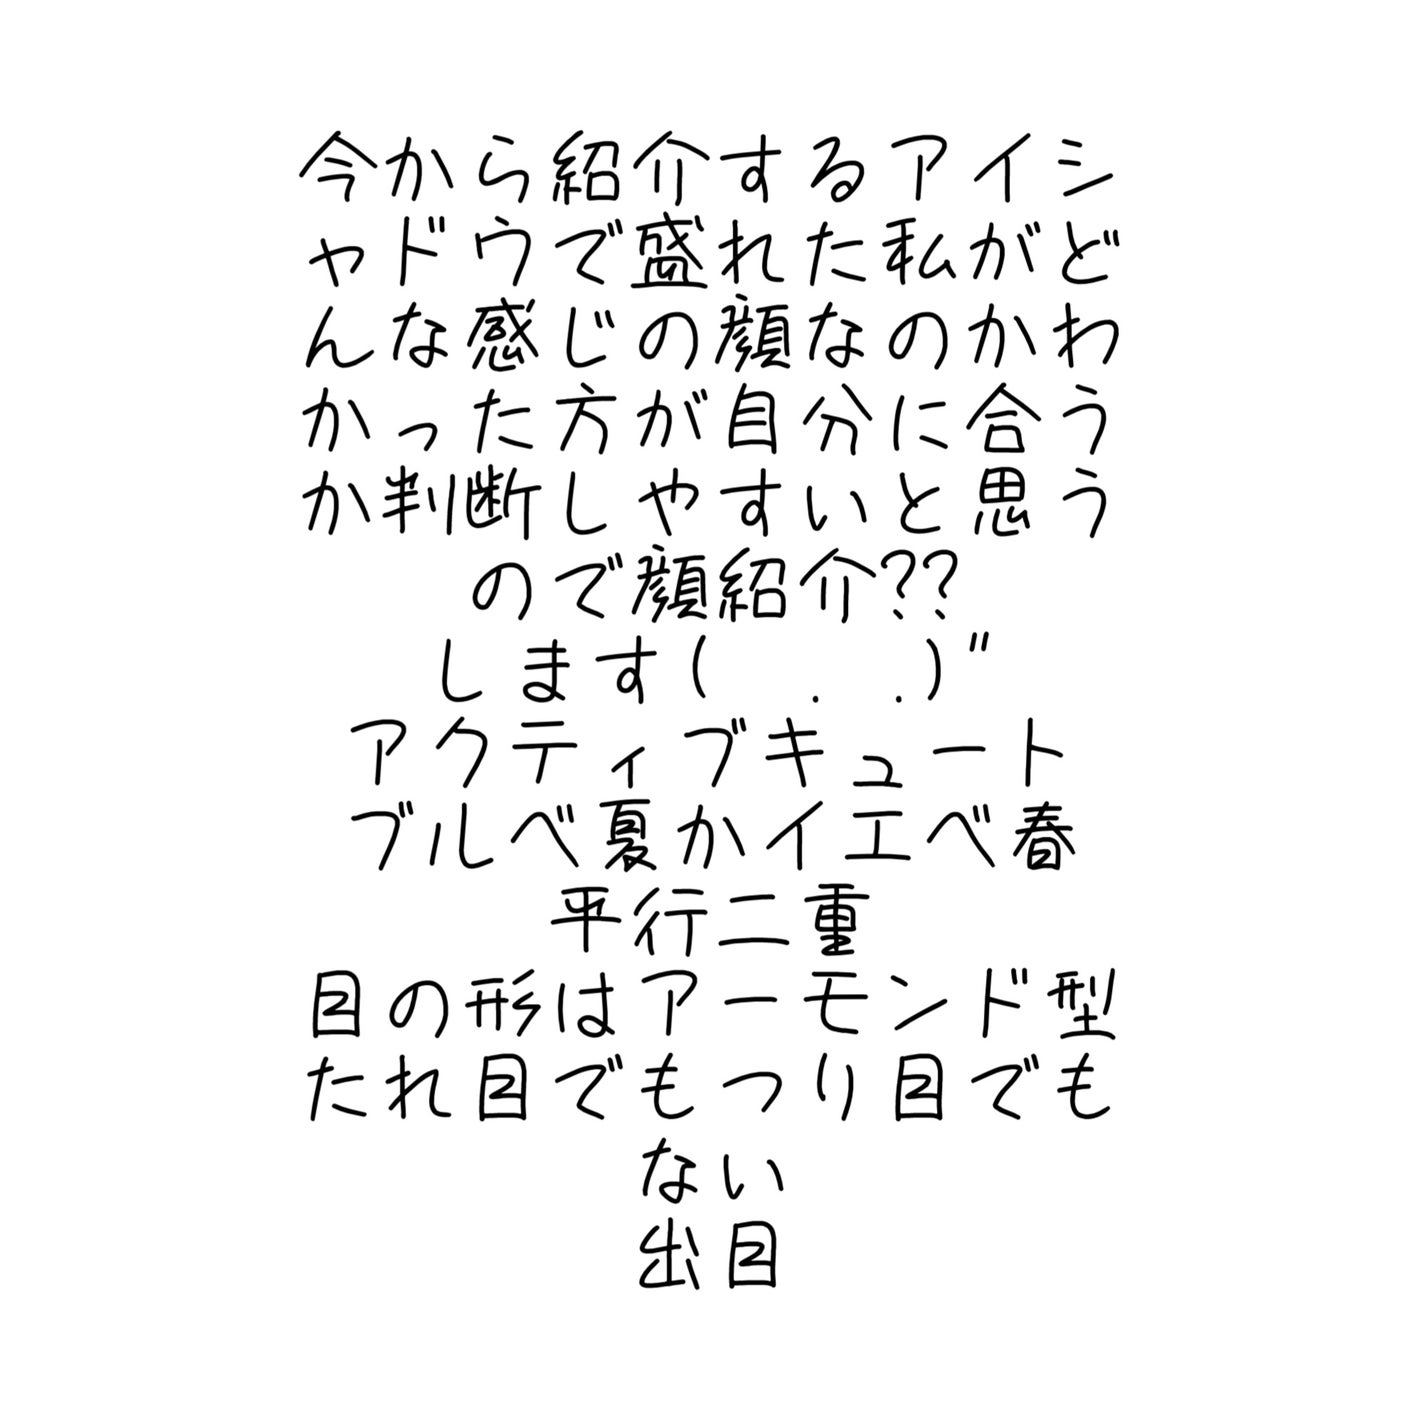 今から紹介するアイシ
ャドウで盛れた私がど
んな感じの顔なのかわ
かった方が自分に合う
か判断しやすいと思う
ので顔紹介??
します(　. .)"
アクティブキュート
ブルベ夏かイエベ春
平行二重
目の形はアーモンド型
たれ目でもつり目でも
ない
出目